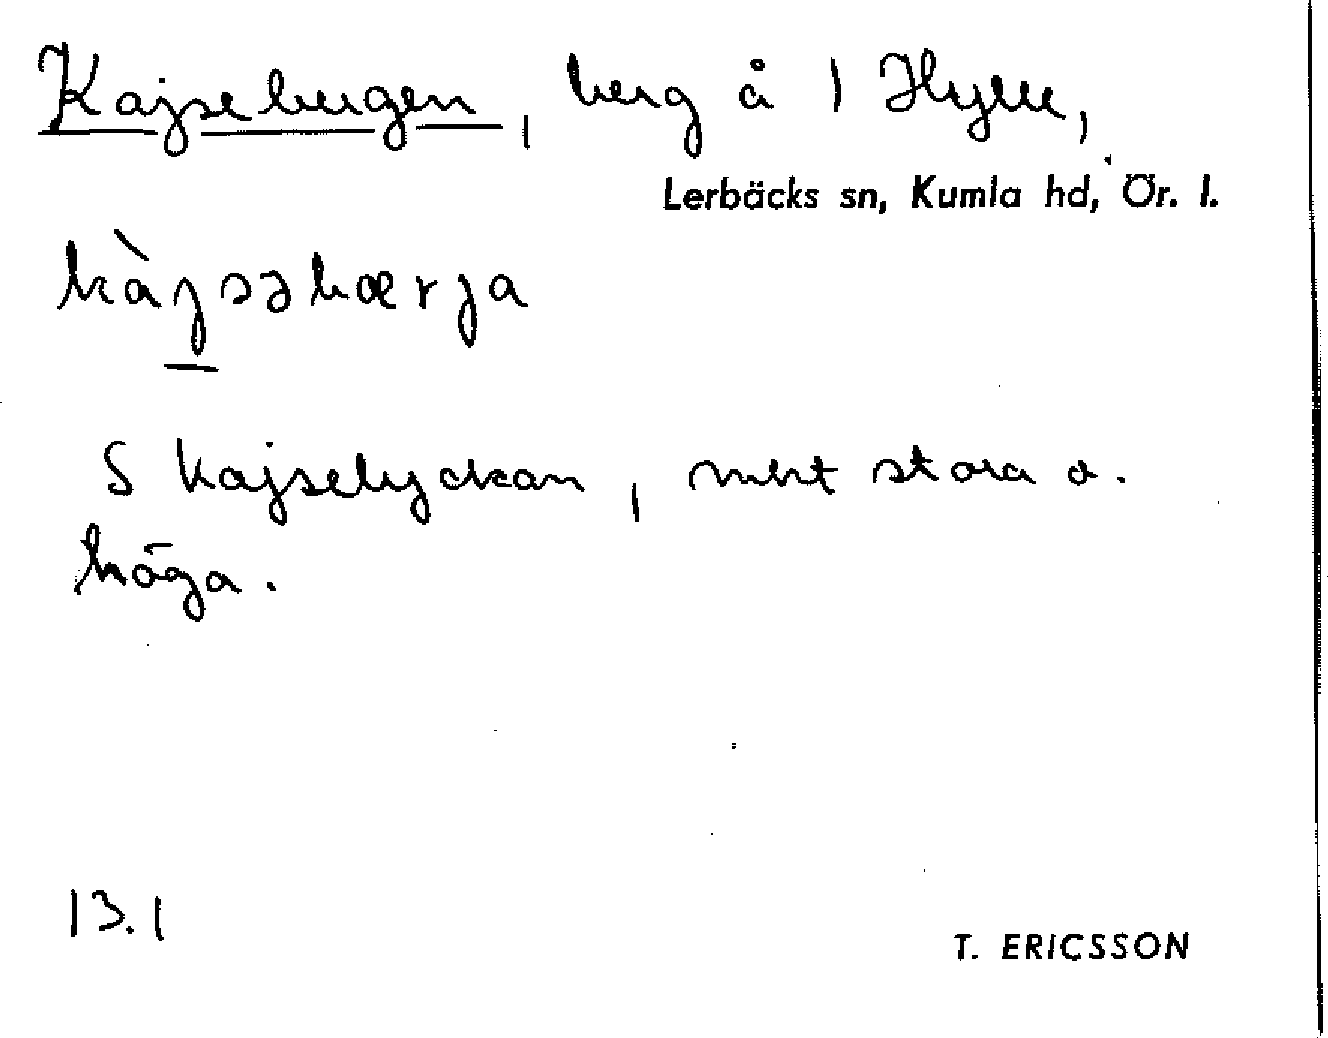 Kajsebergen, berg å 1 Hyttle,
Lerbäcks sn, Kumla hd, Ör. l.
kàjsəbærja
S Kajselyckan, mkt stora o.
höga.
13.1
T. ERICSSON